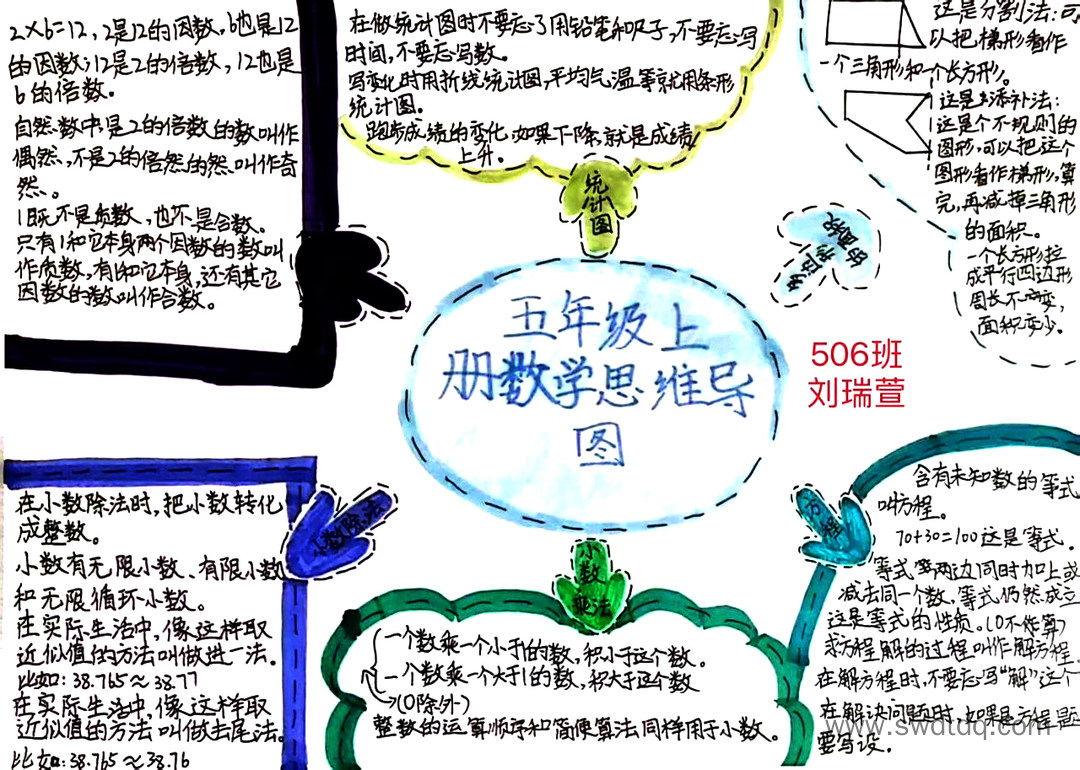 2×6=12，2是12的因数，6也是12
的因数；12是2的倍数，12也是
6的倍数。
自然数中，是2的倍数的数叫作
偶然，不是2的倍然的然叫作奇
然。
1既不是质数，也不是合数。
只有1和它本身两个因数的数叫
作质数，有1和它本身，还有其它
因数的数叫作合数。
在做统计图时不要忘了用铅笔和尺子，不要忘写
时间，不要忘写数。
写变化时用折线统计图，平均气温等就用条形
统计图。
跑步成绩的变化，如果下降，就是成绩
上升。
统计图
这是分割法：可
以把梯形看作
一个三角形和一个长方形。
这是添补法：
这是个不规则的
图形，可以把这个
图形看作梯形，算
完，再减掉三角形
的面积。
一个长方形拉
成平行四边形
周长不变，
面积变少。
的面积
五年级上
册数学思维导
图
506班
刘瑞萱
小数除法
在小数除法时，把小数转化
成整数。
小数有无限小数、有限小数
和无限循环小数。
在实际生活中，像这样取
近似值的方法叫做进一法。
比如：38.765≈38.77
在实际生活中，像这样取
近似值的方法叫做去尾法。
比如：38.765≈38.76
小数乘法
一个数乘一个小于1的数，积小于这个数。
一个数乘一个大于1的数，积大于这个数
(0除外)
整数的运算顺序和简便算法同样用于小数。
方程
含有未知数的等式
叫方程。
70+30=100这是等式。
等式等两边同时加上或
减去同一个数，等式仍然成立
这是等式的性质。(0不作算)
求方程解的过程叫作解方程
在解方程时，不要忘写“解”这个
在解决问题时，如果是方程题
要写设。
www.swdtdq.com